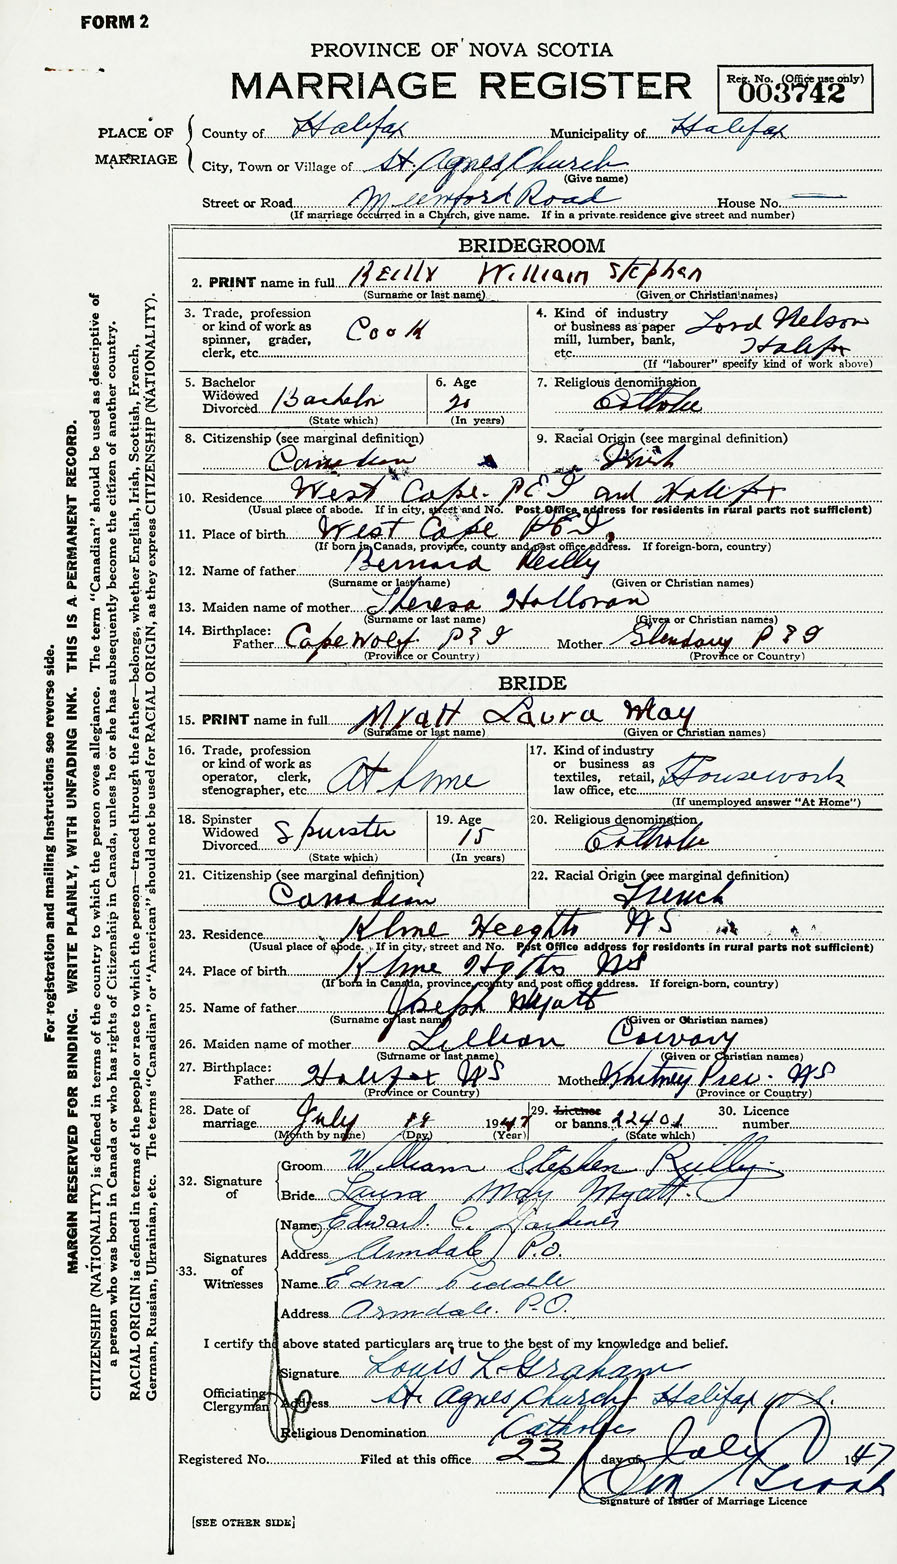 FORM 2
PROVINCE OF NOVA SCOTIA
MARRIAGE REGISTER
Reg. No. (Office use only)
003742
PLACE OF MARRIAGE
County of Halifax Municipality of Halifax
City, Town or Village of St. Agnes Church
(Give name)
Street or Road Mumford Road House No. —
(If marriage occurred in a Church, give name. If in a private residence give street and number)
BRIDEGROOM
2. PRINT name in full Reilly William Stephen
(Surname or last name) (Given or Christian names)
3. Trade, profession or kind of work as spinner, grader, clerk, etc. Cook
4. Kind of industry or business as paper mill, lumber, bank, etc. Lord Nelson Halifax
(If "labourer" specify kind of work above)
5. Bachelor Widowed Divorced Bachelor
(State which)
6. Age 20
(In years)
7. Religious denomination Catholic
8. Citizenship (see marginal definition) Canadian
9. Racial Origin (see marginal definition) Irish
10. Residence West Cape. P E I and Halifax
(Usual place of abode. If in city, street and No. Post Office address for residents in rural parts not sufficient)
11. Place of birth West Cape P E I.
(If born in Canada, province, county and post office address. If foreign-born, country)
12. Name of father Bernard Reilly
(Surname or last name) (Given or Christian names)
13. Maiden name of mother Theresa Holloran
(Surname or last name) (Given or Christian names)
14. Birthplace: Father Cape Wolf P E I Mother P E I
(Province or Country) (Province or Country)
BRIDE
15. PRINT name in full Myatt Laura May
(Surname or last name) (Given or Christian names)
16. Trade, profession or kind of work as operator, clerk, stenographer, etc. At home
17. Kind of industry or business as textiles, retail, law office, etc. Housework
(If unemployed answer "At Home")
18. Spinster Widowed Divorced Spinster
(State which)
19. Age 15
(In years)
20. Religious denomination Catholic
21. Citizenship (see marginal definition) Canadian
22. Racial Origin (see marginal definition) French
23. Residence N S
(Usual place of abode. If in city, street and No. Post Office address for residents in rural parts not sufficient)
24. Place of birth N S
(If born in Canada, province, county and post office address. If foreign-born, country)
25. Name of father Joseph Myatt
(Surname or last name) (Given or Christian names)
26. Maiden name of mother Lillian
(Surname or last name) (Given or Christian names)
27. Birthplace: Father Halifax N S Mother N S
(Province or Country) (Province or Country)
28. Date of marriage July 19 1947
(Month by name) (Day) (Year)
29. License or banns 22401
(State which)
30. Licence number
32. Signature of
Groom William Stephen Reilly
Bride Laura May Myatt.
33. Signatures of Witnesses
Name Edward. C.
Address Armdale P.O.
Name Edna
Address Armdale. P.O.
I certify the above stated particulars are true to the best of my knowledge and belief.
Officiating Clergyman
Signature Louis L. Graham
Address St. Agnes Church Halifax N.S.
Religious Denomination Catholic
Registered No. Filed at this office 23 day of July 1947
Signature of Issuer of Marriage Licence
[SEE OTHER SIDE]
For registration and mailing instructions see reverse side.
MARGIN RESERVED FOR BINDING. WRITE PLAINLY, WITH UNFADING INK. THIS IS A PERMANENT RECORD.
CITIZENSHIP (NATIONALITY) is defined in terms of the country to which the person owes allegiance. The term "Canadian" should be used as descriptive of
a person who was born in Canada or who has rights of Citizenship in Canada, unless he or she has subsequently become the citizen of another country.
RACIAL ORIGIN is defined in terms of the people or race to which the person—traced through the father—belongs, whether English, Irish, Scottish, French,
German, Russian, Ukrainian, etc. The terms "Canadian" or "American" should not be used for RACIAL ORIGIN, as they express CITIZENSHIP (NATIONALITY).